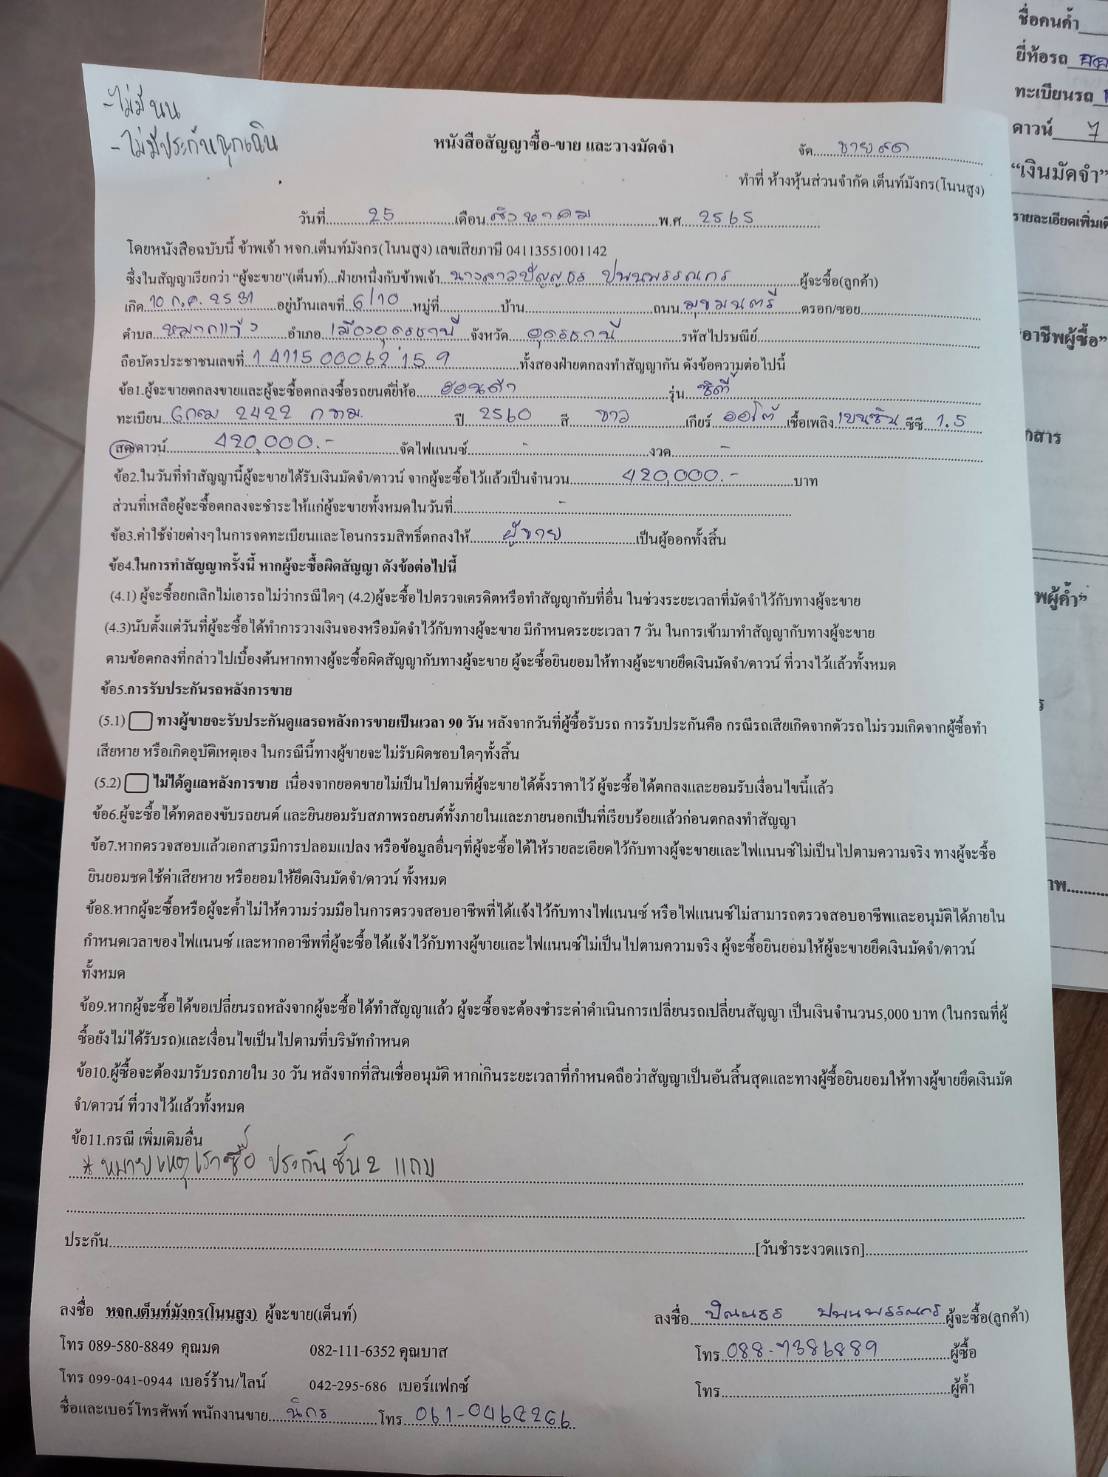 - ไม่มี นน
- ไม่มีประกันฉุกเฉิน
หนังสือสัญญาซื้อ-ขาย และวางมัดจำ
จัด ขายสด
ทำที่ ห้างหุ้นส่วนจำกัด เต็นท์มังกร(โนนสูง)
วันที่ 25 เดือน สิงหาคม พ.ศ. 2565
โดยหนังสือฉบับนี้ ข้าพเจ้า หจก.เต็นท์มังกร(โนนสูง) เลขเสียภาษี 04113551001142
ซึ่งในสัญญาเรียกว่า "ผู้จะขาย"(เต็นท์)...ฝ่ายหนึ่งกับข้าพเจ้า นางสาว ปพนพรรณกร ผู้จะซื้อ(ลูกค้า)
เกิด 10 ก.ค. 2531 อยู่บ้านเลขที่ 6/10 หมู่ที่ บ้าน ถนน มุขมนตรี ตรอก/ซอย
ตำบล หมากแข้ง อำเภอ เมืองอุดรธานี จังหวัด อุดรธานี รหัสไปรษณีย์
ถือบัตรประชาชนเลขที่ 1 4115 00062 15 9 ทั้งสองฝ่ายตกลงทำสัญญากัน ดังข้อความต่อไปนี้
ข้อ1.ผู้จะขายตกลงขายและผู้จะซื้อตกลงซื้อรถยนต์ยี่ห้อ ฮอนด้า รุ่น ซิตี้
ทะเบียน 6กฌ 2422 กทม. ปี 2560 สี ขาว เกียร์ ออโต้ เชื้อเพลิง เบนซิน ซีซี 1.5
สด/ดาวน์ 420,000.- จัดไฟแนนซ์ - งวด -
ข้อ2.ในวันที่ทำสัญญานี้ผู้จะขายได้รับเงินมัดจำ/ดาวน์ จากผู้จะซื้อไว้แล้วเป็นจำนวน 420,000.- บาท
ส่วนที่เหลือผู้จะซื้อตกลงจะชำระให้แก่ผู้จะขายทั้งหมดในวันที่ -
ข้อ3.ค่าใช้จ่ายต่างๆในการจดทะเบียนและโอนกรรมสิทธิ์ตกลงให้ ผู้ขาย เป็นผู้ออกทั้งสิ้น
ข้อ4.ในการทำสัญญาครั้งนี้ หากผู้จะซื้อผิดสัญญา ดังข้อต่อไปนี้
(4.1) ผู้จะซื้อยกเลิกไม่เอารถไม่ว่ากรณีใดๆ (4.2)ผู้จะซื้อไปตรวจเครดิตหรือทำสัญญากับที่อื่น ในช่วงระยะเวลาที่มัดจำไว้กับทางผู้จะขาย
(4.3)นับตั้งแต่วันที่ผู้จะซื้อได้ทำการวางเงินจองหรือมัดจำไว้กับทางผู้จะขาย มีกำหนดระยะเวลา 7 วัน ในการเข้ามาทำสัญญากับทางผู้จะขาย
ตามข้อตกลงที่กล่าวไปเบื้องต้นหากทางผู้จะซื้อผิดสัญญากับทางผู้จะขาย ผู้จะซื้อยินยอมให้ทางผู้จะขายยึดเงินมัดจำ/ดาวน์ ที่วางไว้แล้วทั้งหมด
ข้อ5.การรับประกันรถหลังการขาย
(5.1) ทางผู้ขายจะรับประกันดูแลรถหลังการขายเป็นเวลา 90 วัน หลังจากวันที่ผู้ซื้อรับรถ การรับประกันคือ กรณีรถเสียเกิดจากตัวรถไม่รวมเกิดจากผู้ซื้อทำ
เสียหาย หรือเกิดอุบัติเหตุเอง ในกรณีนี้ทางผู้ขายจะไม่รับผิดชอบใดๆทั้งสิ้น
(5.2) ไม่ได้ดูแลหลังการขาย เนื่องจากยอดขายไม่เป็นไปตามที่ผู้จะขายได้ตั้งราคาไว้ ผู้จะซื้อได้ตกลงและยอมรับเงื่อนไขนี้แล้ว
ข้อ6.ผู้จะซื้อได้ทดลองขับรถยนต์ และยินยอมรับสภาพรถยนต์ทั้งภายในและภายนอกเป็นที่เรียบร้อยแล้วก่อนตกลงทำสัญญา
ข้อ7.หากตรวจสอบแล้วเอกสารมีการปลอมแปลง หรือข้อมูลอื่นๆที่ผู้จะซื้อได้ให้รายละเอียดไว้กับทางผู้จะขายและไฟแนนซ์ไม่เป็นไปตามความจริง ทางผู้จะซื้อ
ยินยอมชดใช้ค่าเสียหาย หรือยอมให้ยึดเงินมัดจำ/ดาวน์ ทั้งหมด
ข้อ8.หากผู้จะซื้อหรือผู้จะค้ำไม่ให้ความร่วมมือในการตรวจสอบอาชีพที่ได้แจ้งไว้กับทางไฟแนนซ์ หรือไฟแนนซ์ไม่สามารถตรวจสอบอาชีพและอนุมัติได้ภายใน
กำหนดเวลาของไฟแนนซ์ และหากอาชีพที่ผู้จะซื้อได้แจ้งไว้กับทางผู้ขายและไฟแนนซ์ไม่เป็นไปตามความจริง ผู้จะซื้อยินยอมให้ผู้จะขายยึดเงินมัดจำ/ดาวน์
ทั้งหมด
ข้อ9.หากผู้จะซื้อได้ขอเปลี่ยนรถหลังจากผู้จะซื้อได้ทำสัญญาแล้ว ผู้จะซื้อจะต้องชำระค่าดำเนินการเปลี่ยนรถเปลี่ยนสัญญา เป็นเงินจำนวน5,000 บาท (ในกรณที่ผู้
ซื้อยังไม่ได้รับรถ)และเงื่อนไขเป็นไปตามที่บริษัทกำหนด
ข้อ10.ผู้ซื้อจะต้องมารับรถภายใน 30 วัน หลังจากที่สินเชื่ออนุมัติ หากเกินระยะเวลาที่กำหนดถือว่าสัญญาเป็นอันสิ้นสุดและทางผู้ซื้อยินยอมให้ทางผู้ขายยึดเงินมัด
จำ/ดาวน์ ที่วางไว้แล้วทั้งหมด
ข้อ11.กรณี เพิ่มเติมอื่น
* หมายเหตุ เราซื้อ ประกันชั้น 2 แถม
ประกัน [วันชำระงวดแรก]
ลงชื่อ หจก.เต็นท์มังกร(โนนสูง) ผู้จะขาย(เต็นท์)
ลงชื่อ ปพนพรรณกร ผู้จะซื้อ(ลูกค้า)
โทร 089-580-8849 คุณมด 082-111-6352 คุณบาส
โทร 088-7386889 ผู้ซื้อ
โทร 099-041-0944 เบอร์ร้าน/ไลน์ 042-295-686 เบอร์แฟกซ์
โทร ผู้ค้ำ
ชื่อและเบอร์โทรศัพท์ พนักงานขาย นิกร โทร 061-0464266
ชื่อคนค้ำ
ยี่ห้อรถ
ทะเบียนรถ
ดาวน์
"เงินมัดจำ"
รายละเอียดเพิ่มเติ
อาชีพผู้ซื้อ"
กสาร
พผู้ค้ำ"